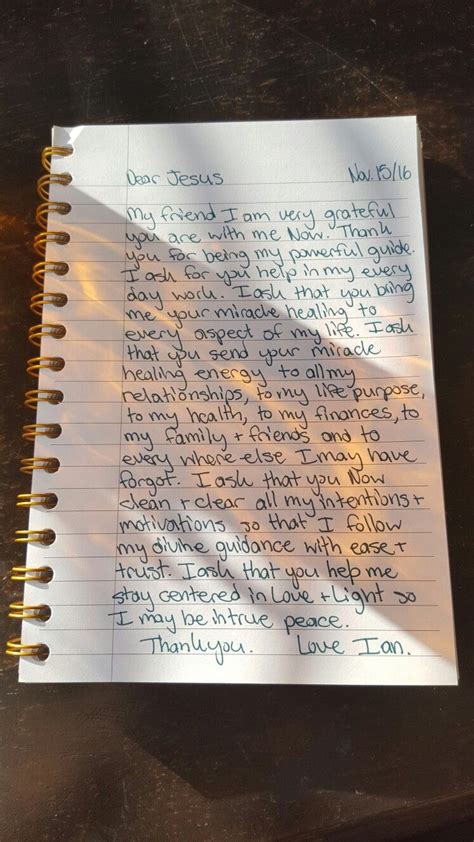 Dear Jesus Nov.15/16
My friend I am very grateful
you are with me Now. Thank
you for being my powerful guide.
I ask for you help in my every
day work. I ask that you bring
me your miracle healing to
every aspect of my life. I ask
that you send your miracle
healing energy to all my
relationships, to my life purpose,
to my health, to my finances, to
my family + friends and to
every where else I may have
forgot. I ask that you Now
clean + clear all my intentions +
motivations so that I follow
my divine guidance with ease +
trust. I ask that you help me
stay centered in Love + Light so
I may be in true peace.
Thank you. Love Ian.